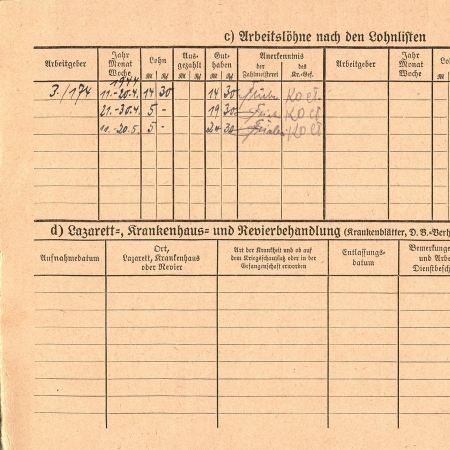 c) Arbeitslöhne nach den Lohnlisten
Arbeitgeber
Jahr Monat Woche
Lohn
M Pf
Ausgezahlt
M Pf
Guthaben
M Pf
Anerkenntnis
der Zahlmeisterei
des Kr.-Gef.
Arbeitgeber
Jahr Monat Woche
1944
3./174 11.-20.4. 14 30 14 30
21.-30.4. 5 - 19 30
11.-20.5. 5 - 24 30
d) Lazarett-, Krankenhaus- und Revierbehandlung (Krankenblätter, D. B.-Verh
Aufnahmedatum
Ort, Lazarett, Krankenhaus oder Revier
Art der Krankheit und ob auf dem Kriegsschauplatz oder in der Gefangenschaft erworben
Entlassungs-datum
Bemerkunge
und Arbe
Dienstbesch